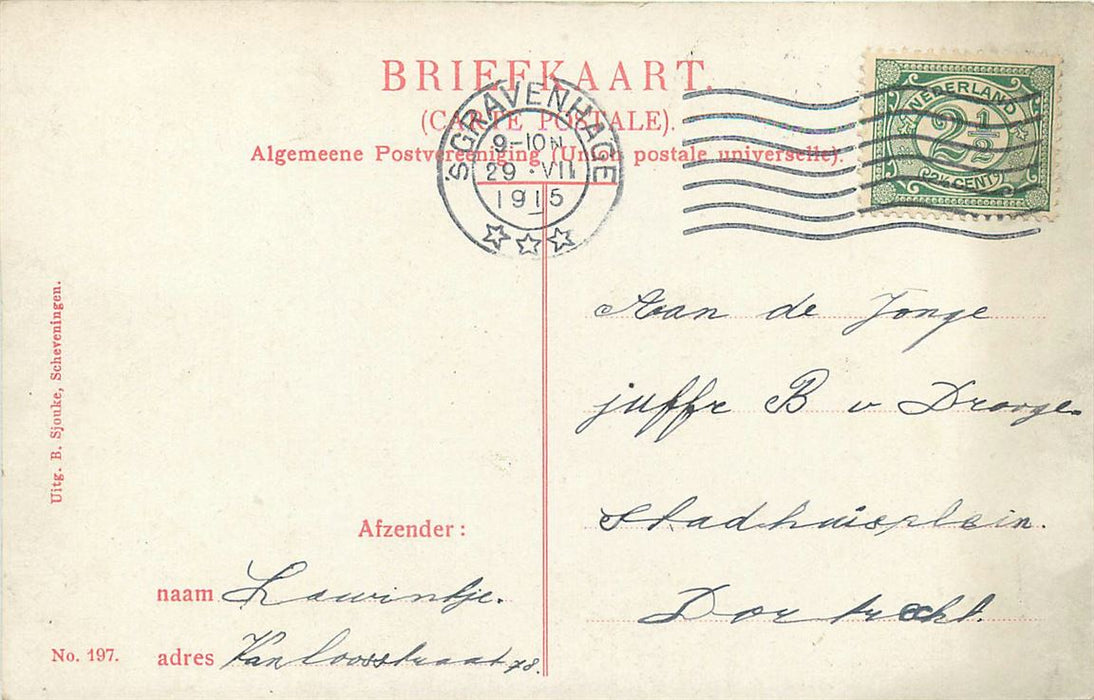 BRIEFKAART.
(CARTE POSTALE).
Algemeene Postvereeniging (Union postale universelle).
'SGRAVENHAGE
9-10 N
29 · VII
1915
NEDERLAND
2 1/2
(2½ CENT)
Aan de Jonge
juffr B v Drooge.
Stadhuisplein.
Dortrecht.
Uitg. B. Sjouke, Scheveningen.
Afzender:
naam Lawintje.
adres Van Loosstraat 78.
No. 197.